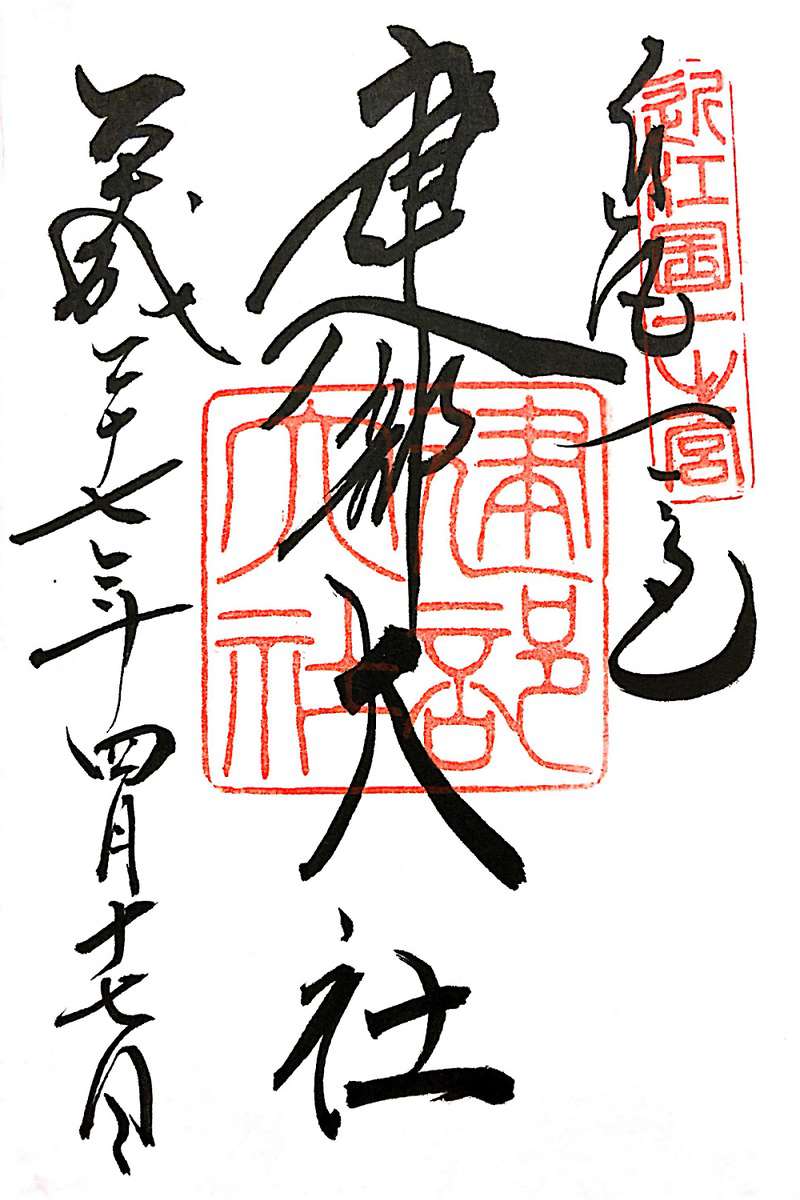 近江国一之宮
建部大社
建部大社
平成二十七年四月十七日